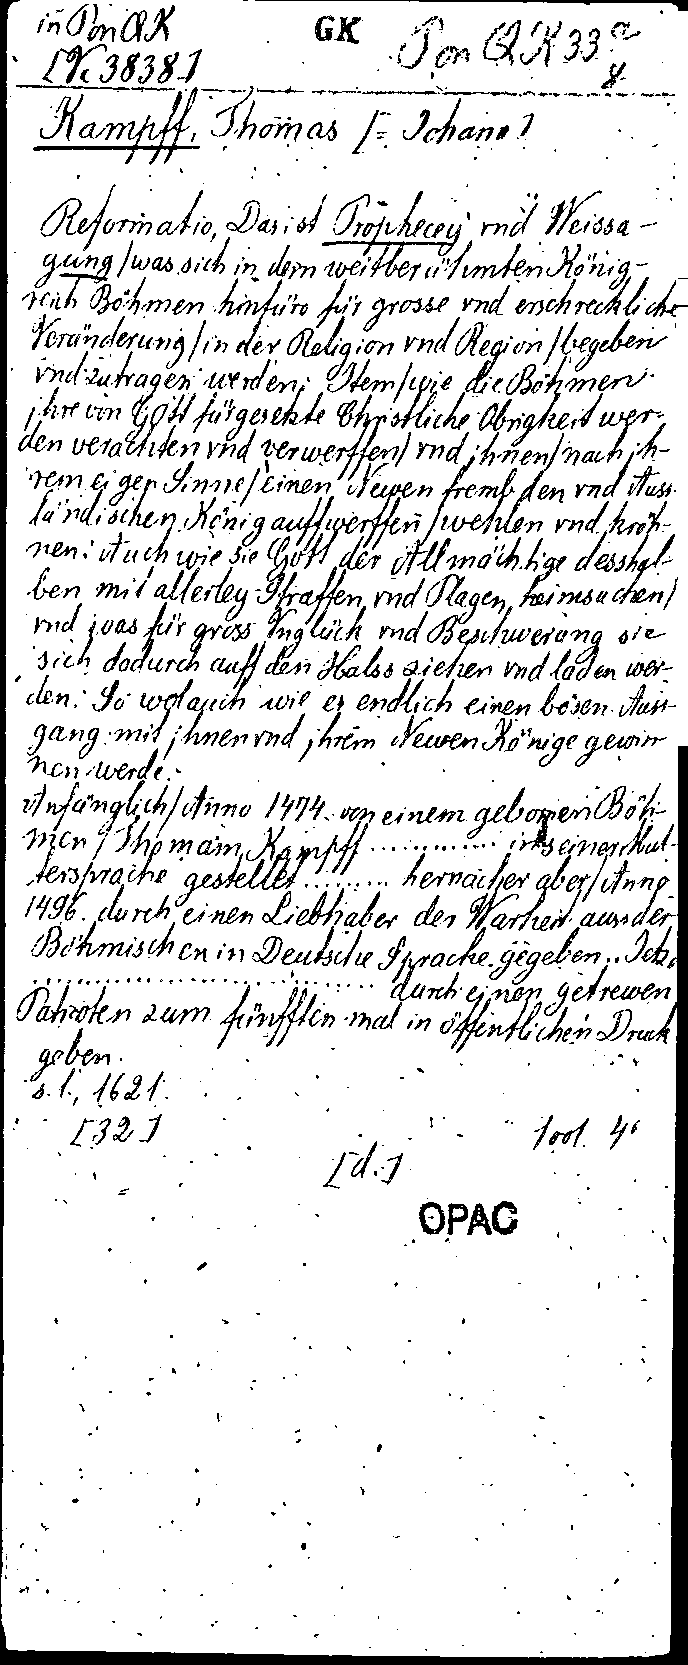 in Pon QK GK Pon QK 33 a
[Vc 3838] 8
Kampff, Thomas [= Johann]
Reformatio, Das ist Prophecey vnd Weissa-
gung/was sich in dem weitberühmten König-
reich Böhmen hinfüro für grosse vnd erschreckliche
Veränderung/in der Religion vnd Region/begeben
vnd zutragen werden: Item/wie die Böhmen
jhre von Gott fürgesetzte Christliche Obrigkeit wer-
den verachten vnd verwerffen/vnd jhnen/nach jh-
rem eigen Sinne/einen Newen frembden vnd Auss-
ländischen König auffwerffen/wehlen vnd kröh-
nen: Auch wie sie Gott der Allmächtige desshal-
ben mit allerley Straffen vnd Plagen heimsuchen/
vnd was für gross Vnglück vnd Beschwerung sie
sich dodurch auff den Halss ziehen vnd laden wer-
den: So wol auch wie es endlich einen bösen Auss-
gang mit jhnen vnd jhrem Newen Könige gewin
nen werde.
Anfänglich/Anno 1474. von einem gebornen Böh-
men/Thomam Kampff ............ in seiner Mut-
tersprache gestellet ......... hernacher aber/Anno
1496. durch einen Liebhaber der Warheit aus der
Böhmischen in Deutsche Sprache gegeben.. Jetz.
.............................. durch einen getrewen
Patrioten zum fünfften mal in öffentlichen Druck
geben.
s.l., 1621.
[32] 4°
[d.]
OPAC